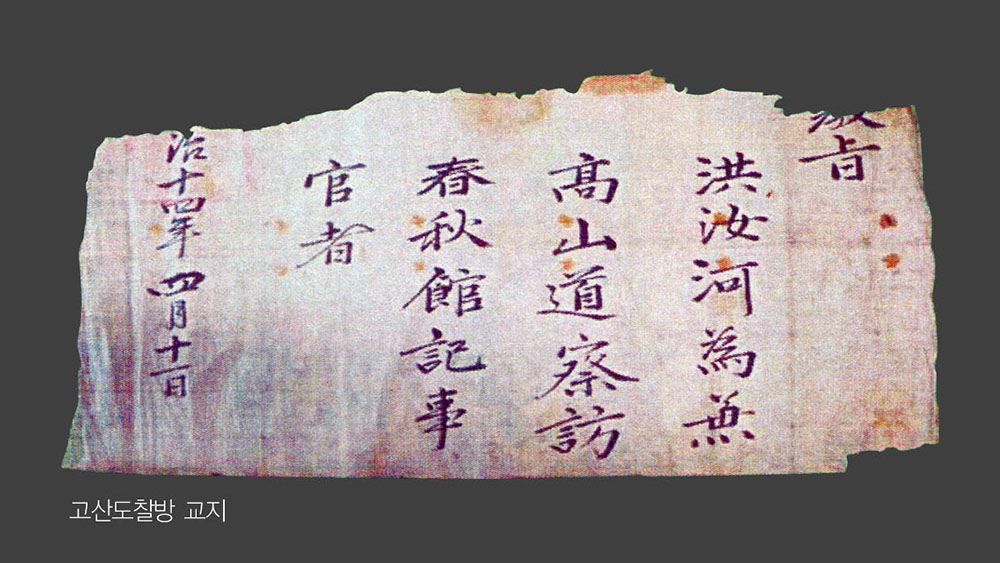 旨
洪汝河為兼
髙山道察訪
春秋館記事
官者
治十四年四月十一日
고산도찰방 교지